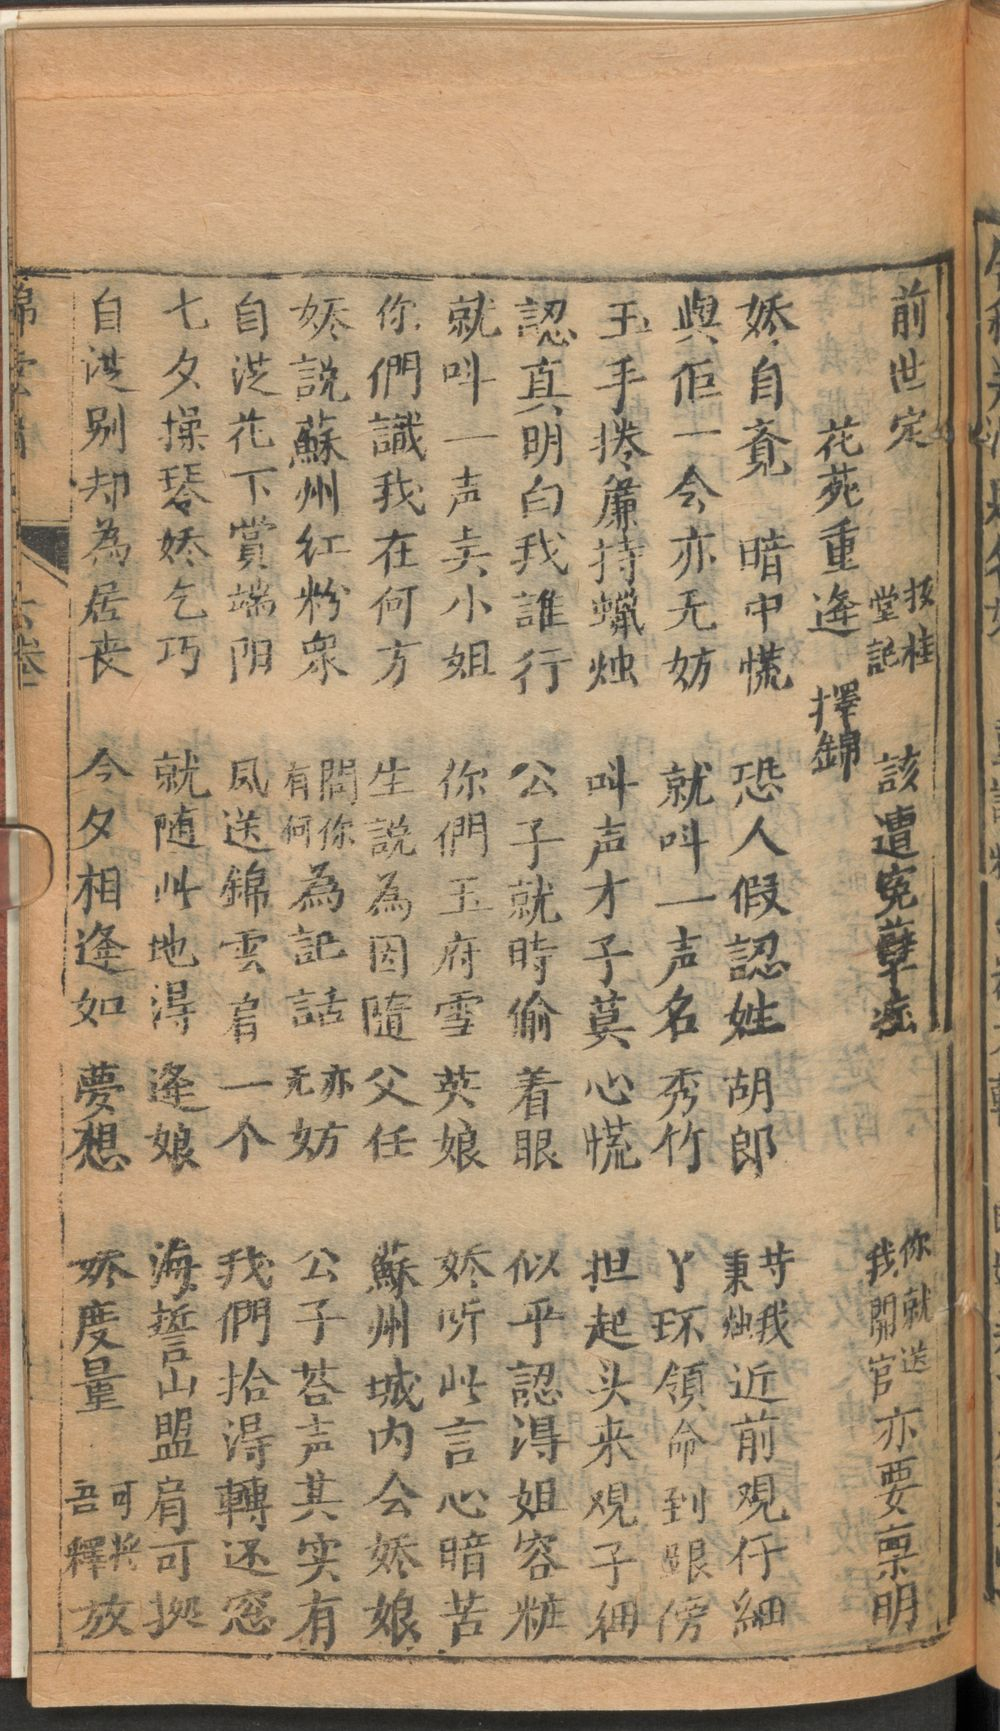 前世定 按桂堂記 該遭冤孽症 你就送我開官亦要稟明
花苑重逢 擇錦
嬌自竟 暗中慌 恐人假認姓胡郎 等我秉烛近前观仔細
與佢一会亦无妨 就叫一声名秀竹 丫环領命到跟傍
玉手捲簾持蠟烛 叫声才子莫心慌 担起头来观子細
認真明白我誰行 公子就時偷着眼 似乎認得姐容粧
就叫一声表小姐 你們王府雪英娘 嬌听此言心暗苦
你們識我在何方 生説為因隨父任 蘇州城内会嬌娘
嬌説蘇州紅粉衆 問你有何為記話亦无妨 公子荅声其实有
自従花下賞端阳 风送錦雲肩一个 我們拾得轉还窓
七夕操琴嬌乞巧 就随此地得逢娘 海誓山盟肩可拠
自従别却為居丧 今夕相逢如夢想 嬌度量 可將吾釋放
六卷